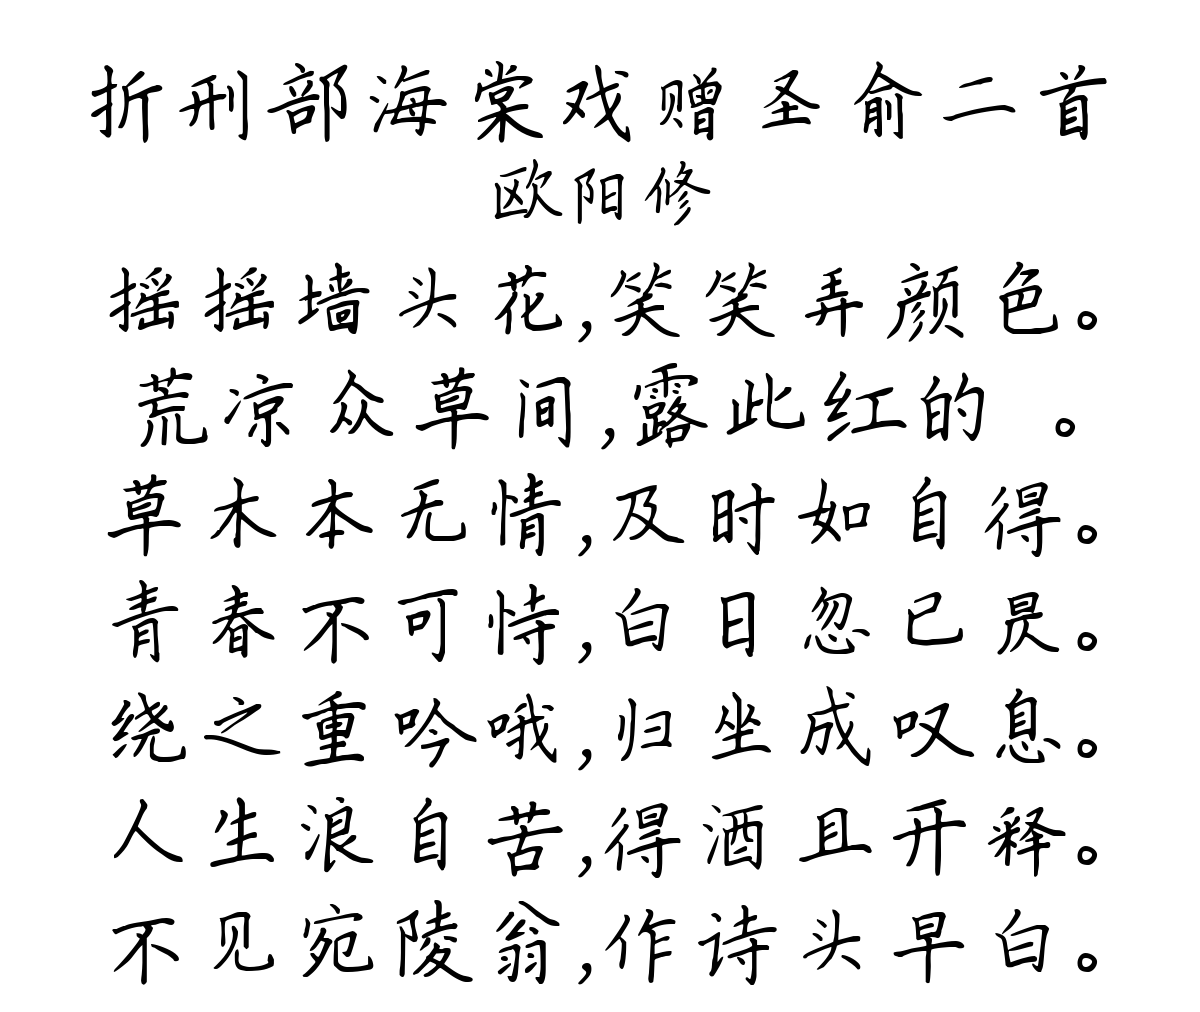 折刑部海棠戏赠圣俞二首
欧阳修
摇摇墙头花,笑笑弄颜色。
荒凉众草间,露此红的 。
草木本无情,及时如自得。
青春不可恃,白日忽已昃。
绕之重吟哦,归坐成叹息。
人生浪自苦,得酒且开释。
不见宛陵翁,作诗头早白。